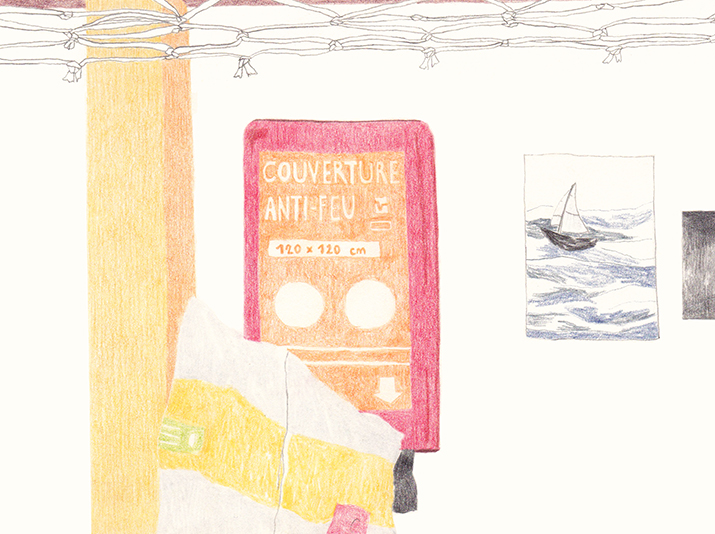 COUVERTURE
ANTI-FEU
120 x 120 cm